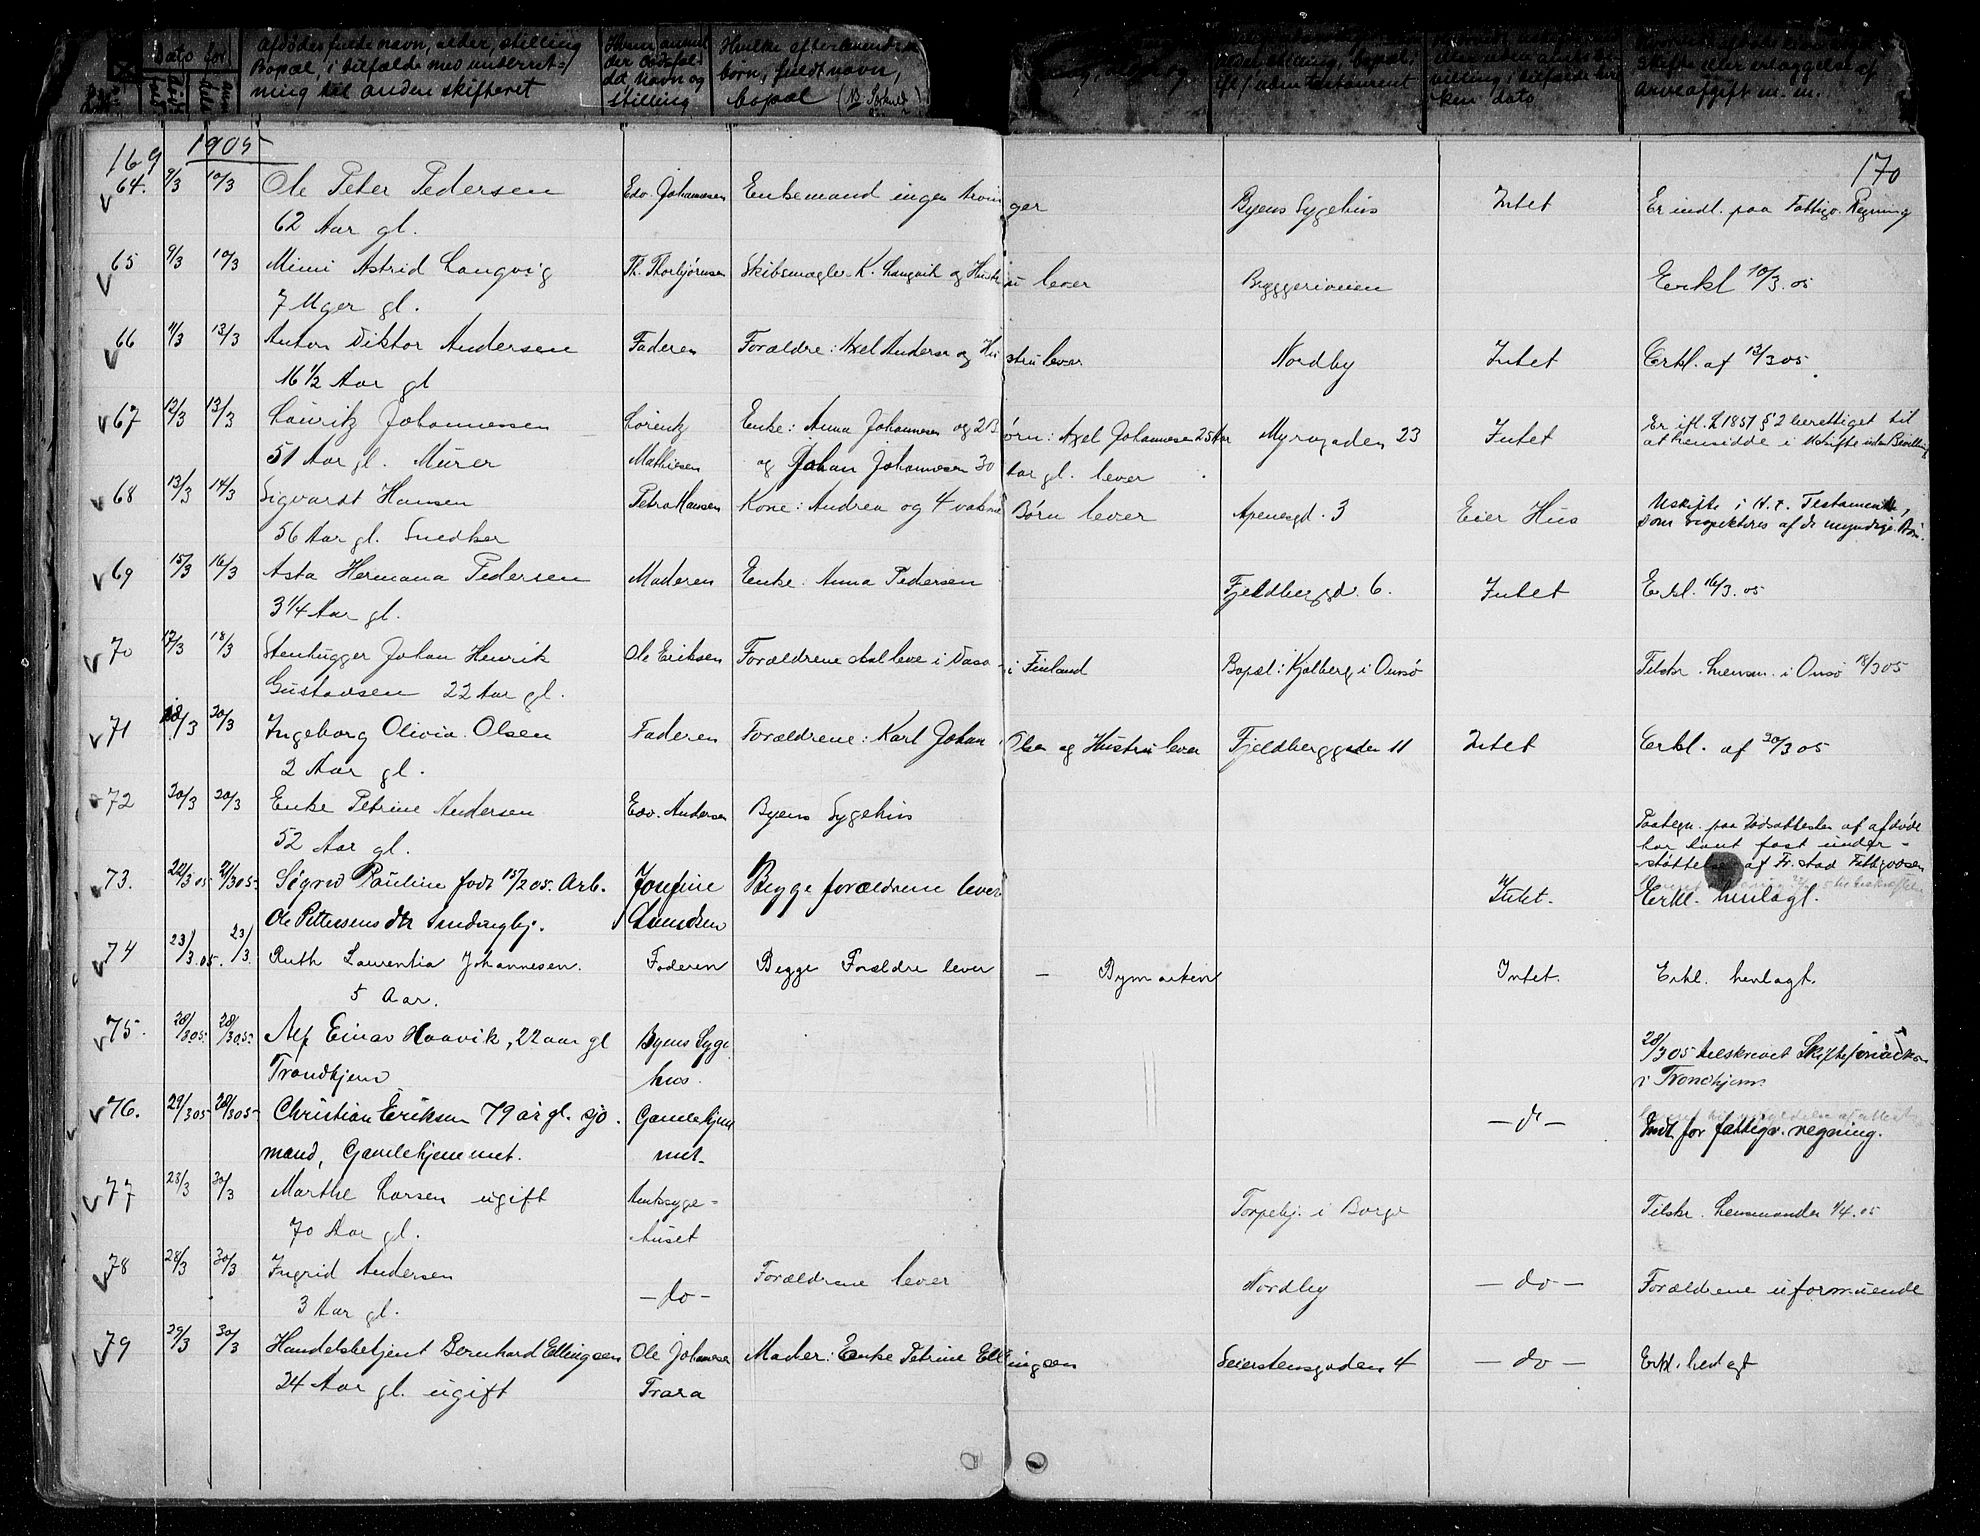 Dato for
Afdødes fulde navn, alder, stilling
Bopæl, i tilfælde med underret-
ning til anden skifteret
Hvem anmel
der dødsfal
det, navn og
stilling
Hvilke efterlevende
børn, fuldt navn,
bopæl
ifl / uden testament
ken dato
skifte eller erlæggelse af
arveafgift m. m.
169 1905 170
64. 9/3 10/3 Ole Peter Pedersen Edv. Johannesen Enkemand ingen Arvinger Byens Sygehus Intet Er indl. paa Fattigv. Regning
62 Aar gl.
65 9/3 10/3 Mimi Astrid Langvig Th. Thorbjørnsen Skibsmægler K. Langvik og Hustru lever Bryggeriveien Erkl 10/3. 05
7 Uger gl.
66 11/3 13/3 Anton Viktor Andersen Faderen Forældre: Axel Andersen og Hustru lever Nordby Intet Erkl. af 13/3 05.
16 1/2 Aar gl
67 12/3 13/3 Lauritz Johannessen Lorentz Enke: Anna Johannesen og 2 Børn: Axel Johannesen 25 Aar Myragaden 23 Intet Er ifl. L 1851 § 2 berettiget til
51 Aar gl. Murer Mathisen og Johan Johannesen 30 Aar gl. lever at hensidde i Uskifte uden Bevilling
68 13/3 14/3 Sigvardt Hansen Petra Hansen Kone: Andrea og 4 voksne Børn lever Apenesgd. 3 Eier Hus Uskifte i H. t. Testamente,
56 Aar gl. Snedker som respekteres af de myndige Børn.
69 15/3 16/3 Asta Hermana Pedersen Moderen Enke: Anna Pedersen Fjeldberggd. 6. Intet Erkl. 16/3. 05
3 1/4 Aar gl.
70 17/3 18/3 Stenhugger Johan Henrik Ole Eriksen Forældrene skal leve i Vasa i Finland Bopæl: Kjølberg i Onsø Tilskr. Lensm. i Onsø 18/3 05
Gustavsen 22 Aar gl.
71 18/3 20/3 Ingeborg Olivia Olsen Faderen Forældrene: Karl Johan Olsen og Hustru lever Fjeldberggaden 11 Intet Erkl. af 20/3 05
2 Aar gl.
72 20/3 20/3 Enke Petrine Andersen Edv. Andersen Byens Sygehus
52 Aar gl.
Paategn. paa Dødsattesten af afdøde
har havt fast under-
støttelse af Fr.stad Fattigvæsen
73. 20/3 05 21/3 05. Sigrid Pauline født 15/2 05. Arb. Josefine Begge forældrene lever Intet. Erkl. henlagt.
Ole Pettersens dtr Smedingbj. Lundsen
74 23/3. 05. 23/3. Ruth Laurentia Johannesen. Faderen Begge Forældre lever — Bymarken Intet. Erkl. henlagt.
5 Aar.
75. 28/3 05. 28/3 05. Alf Einar Haavik, 22 aar gl Byens Syge 28/3 05 tilskrevet Skifteforvalteren
Trondhjem hus. i Trondhjem.
76. 29/3 05 28/3 05 Christian Eriksen 79 år gl. sjø. Gamlehjem — do — Indl. for fattigv. regning.
mand, Gamlehjemmet. met.
77 28/3 30/3 Marthe Larsen ugift Amtssyge- Torpebj. i Borge Tilskr. Lensmanden 1/4. 05
70 Aar gl. huset
78 28/3 30/3 Ingrid Andersen — do — Forældrene lever Nordby — do — Forældrene uformuende
3 Aar gl.
79 29/3 30/3 Handelsbetjent Bernhard Ellingsen Ole Johannesen Moder: Enke Petrine Ellingsen Seierstensgaden 4 — do — Erkl. henlagt
24 Aar gl. ugift Trara